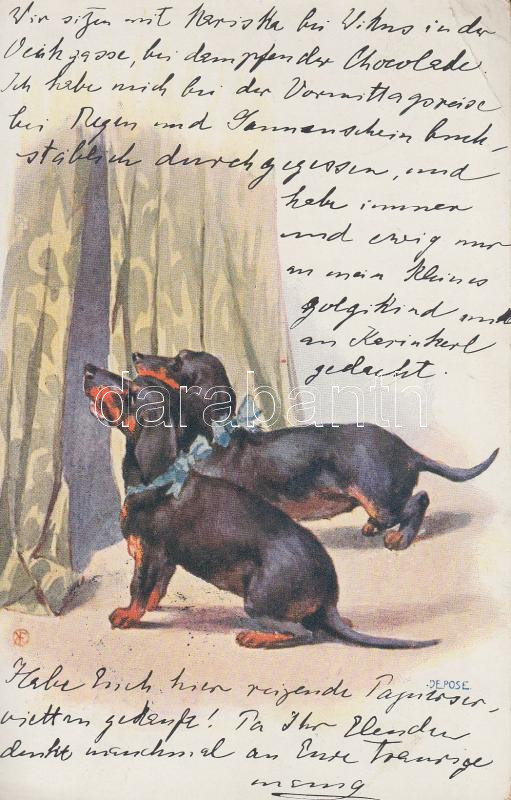 Wir sitzen mit Mariska bei Wikus in der
bei dampfender Chocolade
Ich habe mich bei der Vormittagsreise
bei Regen und Sonnenschein buch-
stäblich durchgegessen, und
habe immer
und ewig nur
an mein kleines
Golgikind und
an Karinkerl
gedacht.
darabanth
DEPOSE
Habe Euch hier reizende Papierser-
vietten gekauft! Ja Ihr Elenden
denkt manchmal an Eure traurige